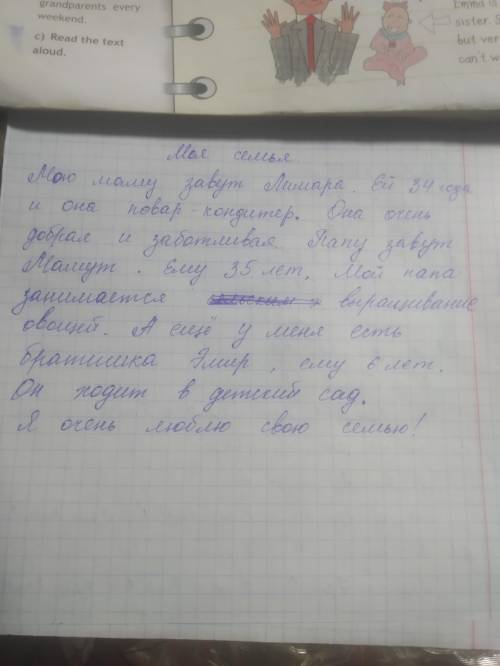 grandparents every
weekend.
c) Read the text
aloud.
Emma is
sister. S
but ver
can't w
Моя семья
Мою маму завут Лимара. Ей 34 года
и она повар-кондитер. Она очень
добрая и заботливая. Папу завут
Мамут. Ему 35 лет, Мой папа
занимается выращивание
овощей. А ещё у меня есть
братишка Эмир, ему 6 лет.
Он ходит в детский сад.
Я очень люблю свою семью!